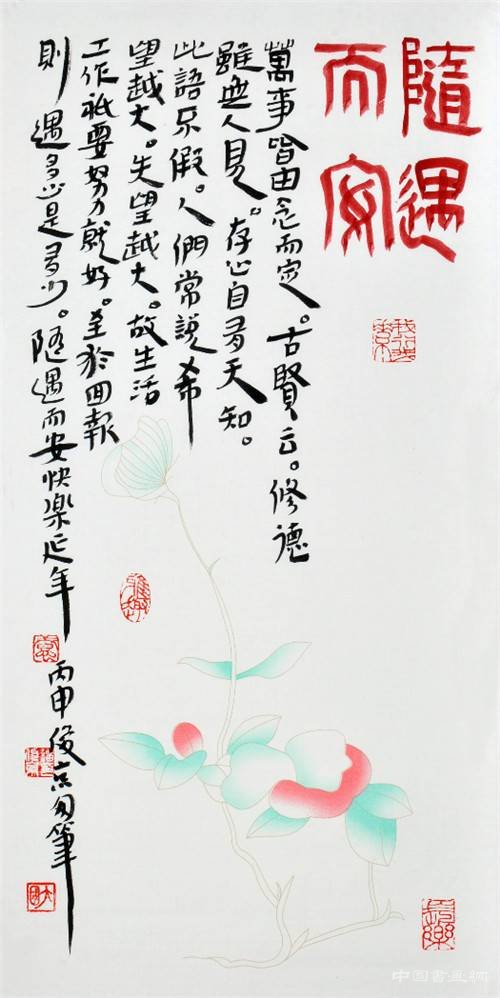 隨遇
而安
萬事皆由念而定。古賢云。修德
雖無人見。存心自有天知。
此語不假。人們常說希
望越大。失望越大。故生活
工作祇要努力就好。至於回報
則遇多少是多少。隨遇而安快樂延年
丙申俊京筆
雅趣
長樂
中国書画網